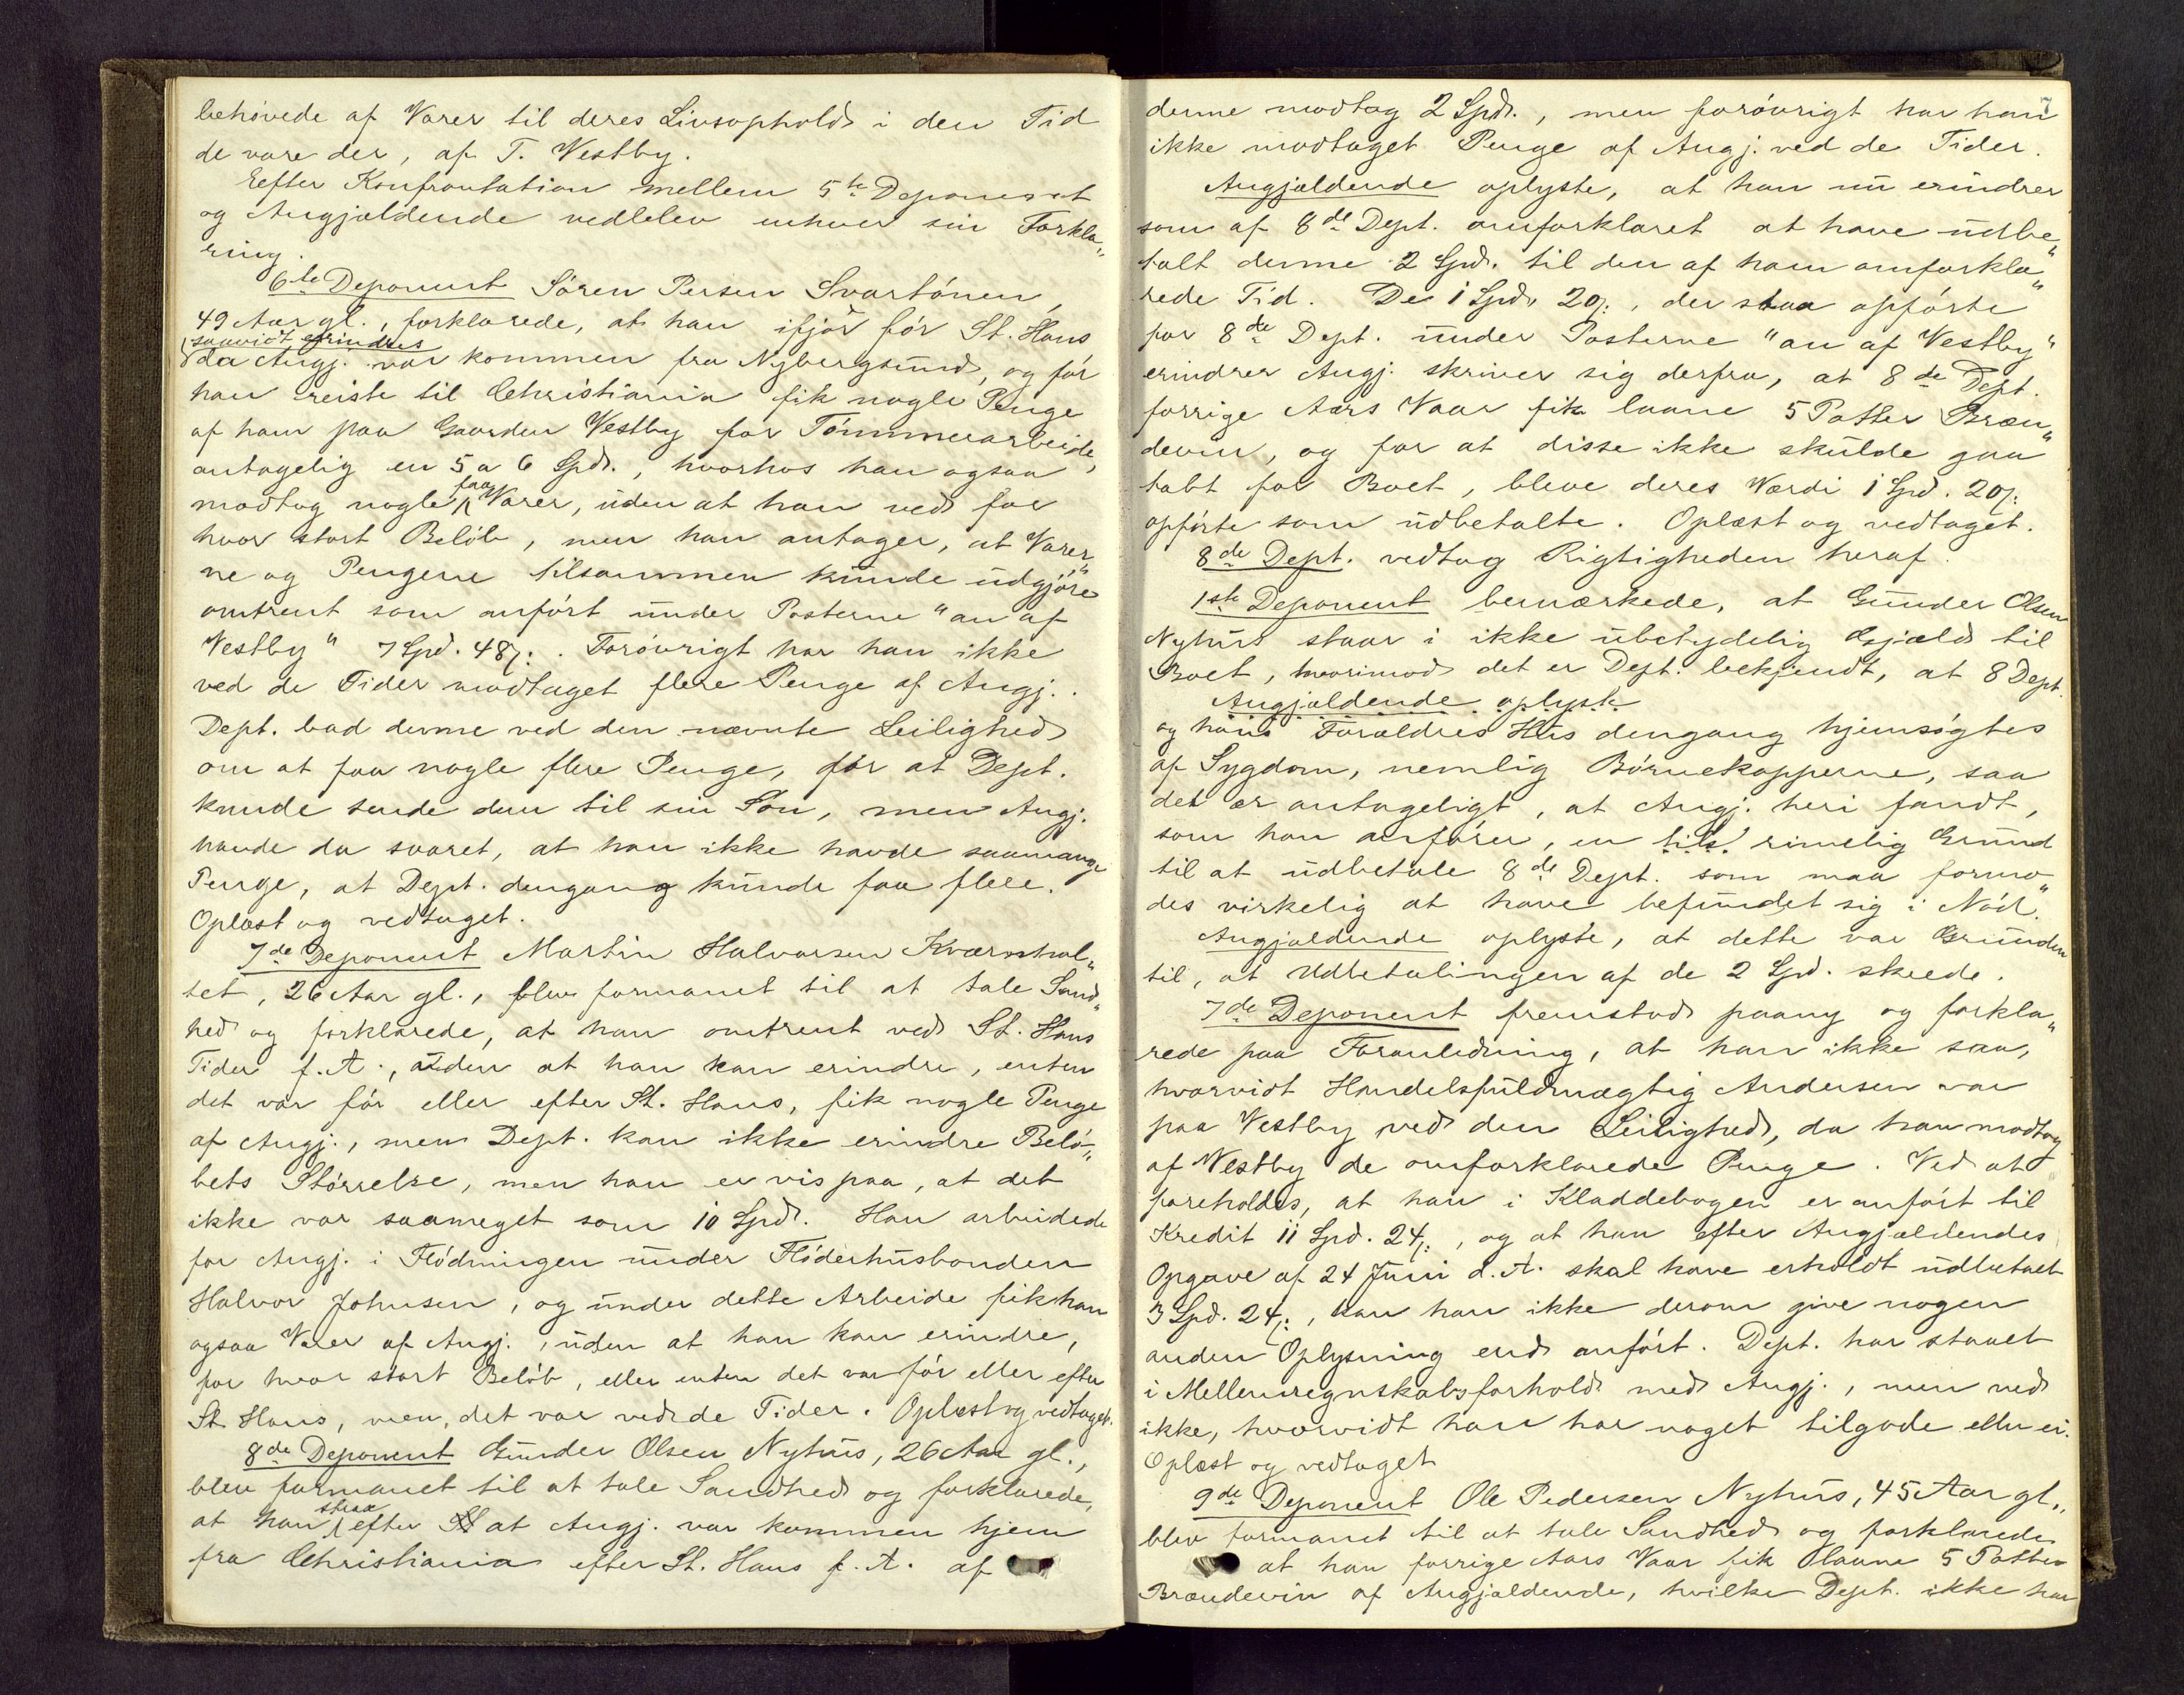 behøvede af Varer til deres Livsophold i den Tid
de vare der, af T. Vestby.
Eefter Konfrontation mellem 5te Deponent
og Angjældende vedblev enhver sin Forkla„
ring.
6te Deponent Søren Persen Svartónen,
49 Aar gl., forklarede, at han ifjor før St. Hans
saavidt erindres
da Angj. var kommen fra Nybergsund, og før
han reiste til Christiania fik nogle Penge
af ham paa Gaarden Vestby for Tømmerarbeide,
antagelig en 5 a 6 Spd., hvorhos han ogsaa
modtog nogle faa Varer, uden at han ved for
hvor stort Beløb, men han antager, at Varer„
ne og Pengene tilsammen kunde udgjøre
omtrent som anført under Posterne "an af
Vestby" 7 Spd. 48ẞ. Forøvrigt har han ikke
ved de Tider modtaget flere Penge af Angj..
Dept. bad denne ved den nævnte Leilighed
om at faa nogle flere Penge, for at Dept.
kunde sende dem til sin Søn, men Angj.
havde da svaret, at han ikke havde saamange
Penge, at Dept. dengang kunde faa flere.
Oplæst og vedtaget.
7de Deponent Martin Halvorsen Kværnhol„
tet, 26 Aar gl., blev formanet til at tale Sand„
hed og forklarede, at han omtrent ved St. Hans
Tider f. A., uden at han kan erindre, enten
det var før eller efter St. Hans, fik nogle Penge
af Angj., men Dept. kan ikke erindre Belø„
bets Størrelse, men han er vis paa, at det
ikke var saameget som 10 Spd. Han arbeidede
for Angj. i Flødningen under Fløderhusbonden
Halvor Johnsen, og under dette Arbeide fik han
ogsaa Varer af Angj., uden at han kan erindre,
for hvor stort Beløb, eller enten det var før eller efter
St. Hans, men, det var ved de Tider. Oplæst og vedtaget.
8de Deponent Gunder Olsen Nyhus, 26 Aar gl.,
blev formanet til at tale Sandhed og forklarede,
at han strax efter at Angj. var kommen hjem
fra Christiania efter St. Hans f. A. af
7
denne modtog 2 Spd., men forøvrigt har han
ikke modtaget Penge af Angj. ved de Tider.
Angjældende oplyste, at han nu erindrer
som af 8de Dept. omforklaret at have udbe„
talt denne 2 Spd. til den af ham omforkla„
rede Tid. De 1 Spd. 20ẞ., der staa opførte
for 8de Dept. under Posterne "an af Vestby"
erindrer Angj. skriver sig derfra, at 8de Dept.
forrige Aars Vaar fik laane 5 Potter Bræn„
devin, og for at disse ikke skulde gaa
tabt for Boet, bleve deres Værdi 1 Spd. 20ẞ.
opførte som udbetalte. Oplæst og vedtaget.
8de Dept. vedtog Rigtigheden heraf.
1ste Deponent bemærkede, at Gunder Olsen
Nyhus staar i ikke ubetydelig Gjæld til
Boet, hvorimod det er Dept. bekjendt, at 8 Dept.
Angjældende oplyste
og hans Forældres Hus dengang hjemsøgtes
af Sygdom, nemlig Børnekopperne, saa
det er antageligt, at Angj. heri fandt,
som han anfører, en tils. rimelig Grund
til at udbetale 8de Dept. som maa formo„
des virkelig at have befundet sig i Nød.
Angjældende oplyste, at dette var Grunden
til, at Udbetalingen af de 2 Spd. skeede.
7de Deponent fremstod paany og forkla„
rede paa Foranledning, at han ikke saa,
hvorvidt Handelsfuldmægtig Andersen var
paa Vestby ved den Leilighed, da han modtog
af Vestby de omforklarede Penge. Ved at
foreholdes, at han i Kladdebogen er anført til
Kredit 11 Spd. 24ẞ., og at han efter Angjældendes
Opgave af 24 Juni d. A. skal have erholdt udbetalt
3 Spd. 24ẞ., kan han ikke derom give nogen
anden Oplysning end anført. Dept. har staaet
i Mellemregnskabsforhold med Angj., men ved
ikke, hvorvidt han har noget tilgode eller ei.
Oplæst og vedtaget
9de Deponent Ole Pedersen Nyhus, 45 Aar gl.,
blev formanet til at tale Sandhed og forklarede
at han forrige Aars Vaar fik laane 5 Potter
Brændevin af Angjældende, hvilke Dept. ikke har